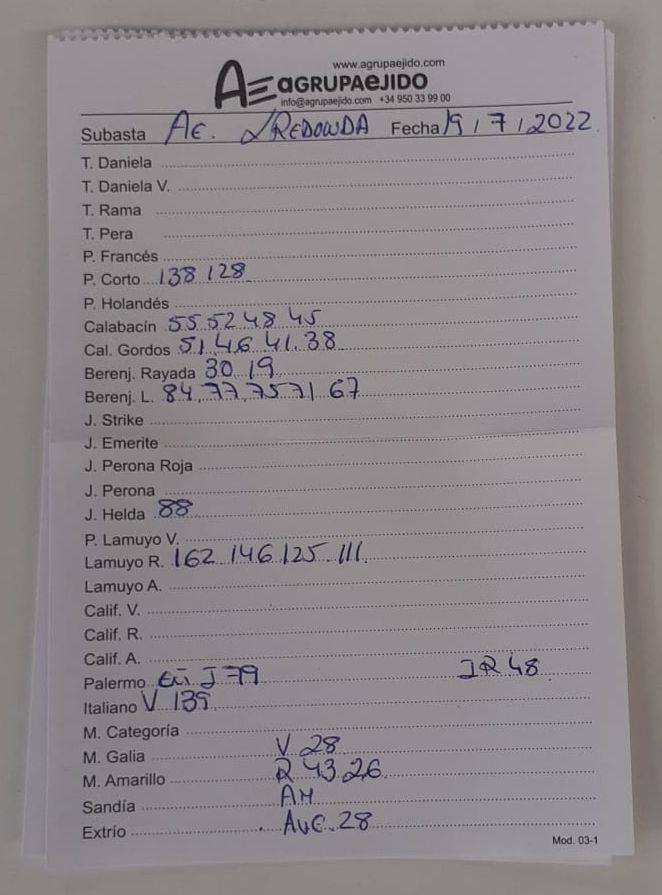 www.agrupaejido.com
AE aGRUPAeJIDO
info@agrupaejido.com +34 950 33 99 00
Subasta AE. LA REDONDA Fecha 19 / 7 / 2022
T. Daniela
T. Daniela V.
T. Rama
T. Pera
P. Francés
P. Corto 138 128
P. Holandés
Calabacín 55 52 48 45
Cal. Gordos 51 46 41 38
Berenj. Rayada 30 19
Berenj. L. 84, 77, 75 71 67
J. Strike
J. Emerite
J. Perona Roja
J. Perona
J. Helda 88
P. Lamuyo V.
Lamuyo R. 162 146 125 111
Lamuyo A.
Calif. V.
Calif. R.
Calif. A.
Palermo J 79 JR 48
Italiano V 139
M. Categoría
M. Galia V 28
M. Amarillo R 43 26
Sandía AM
Extrío AVE. 28
Mod. 03-1